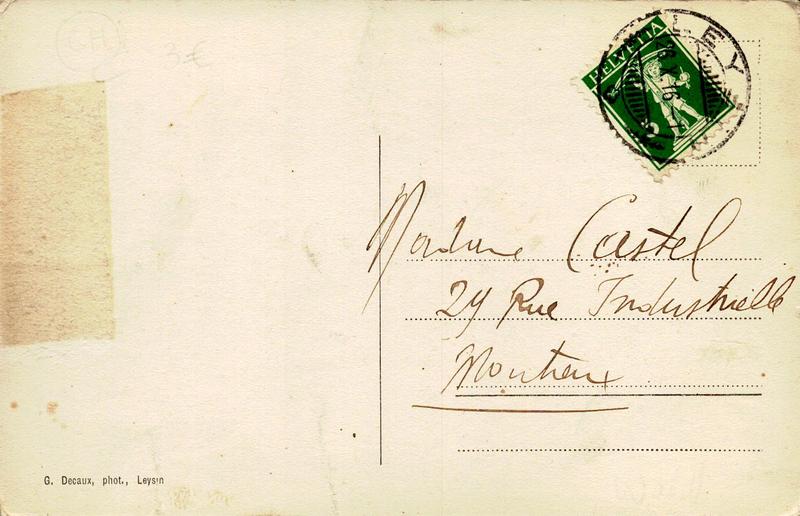 CH
3€
HELVETIA
LEY
28.X.16
Madame Castel
29 Rue Industrielle
Montreux
G. Decaux, phot., Leysin